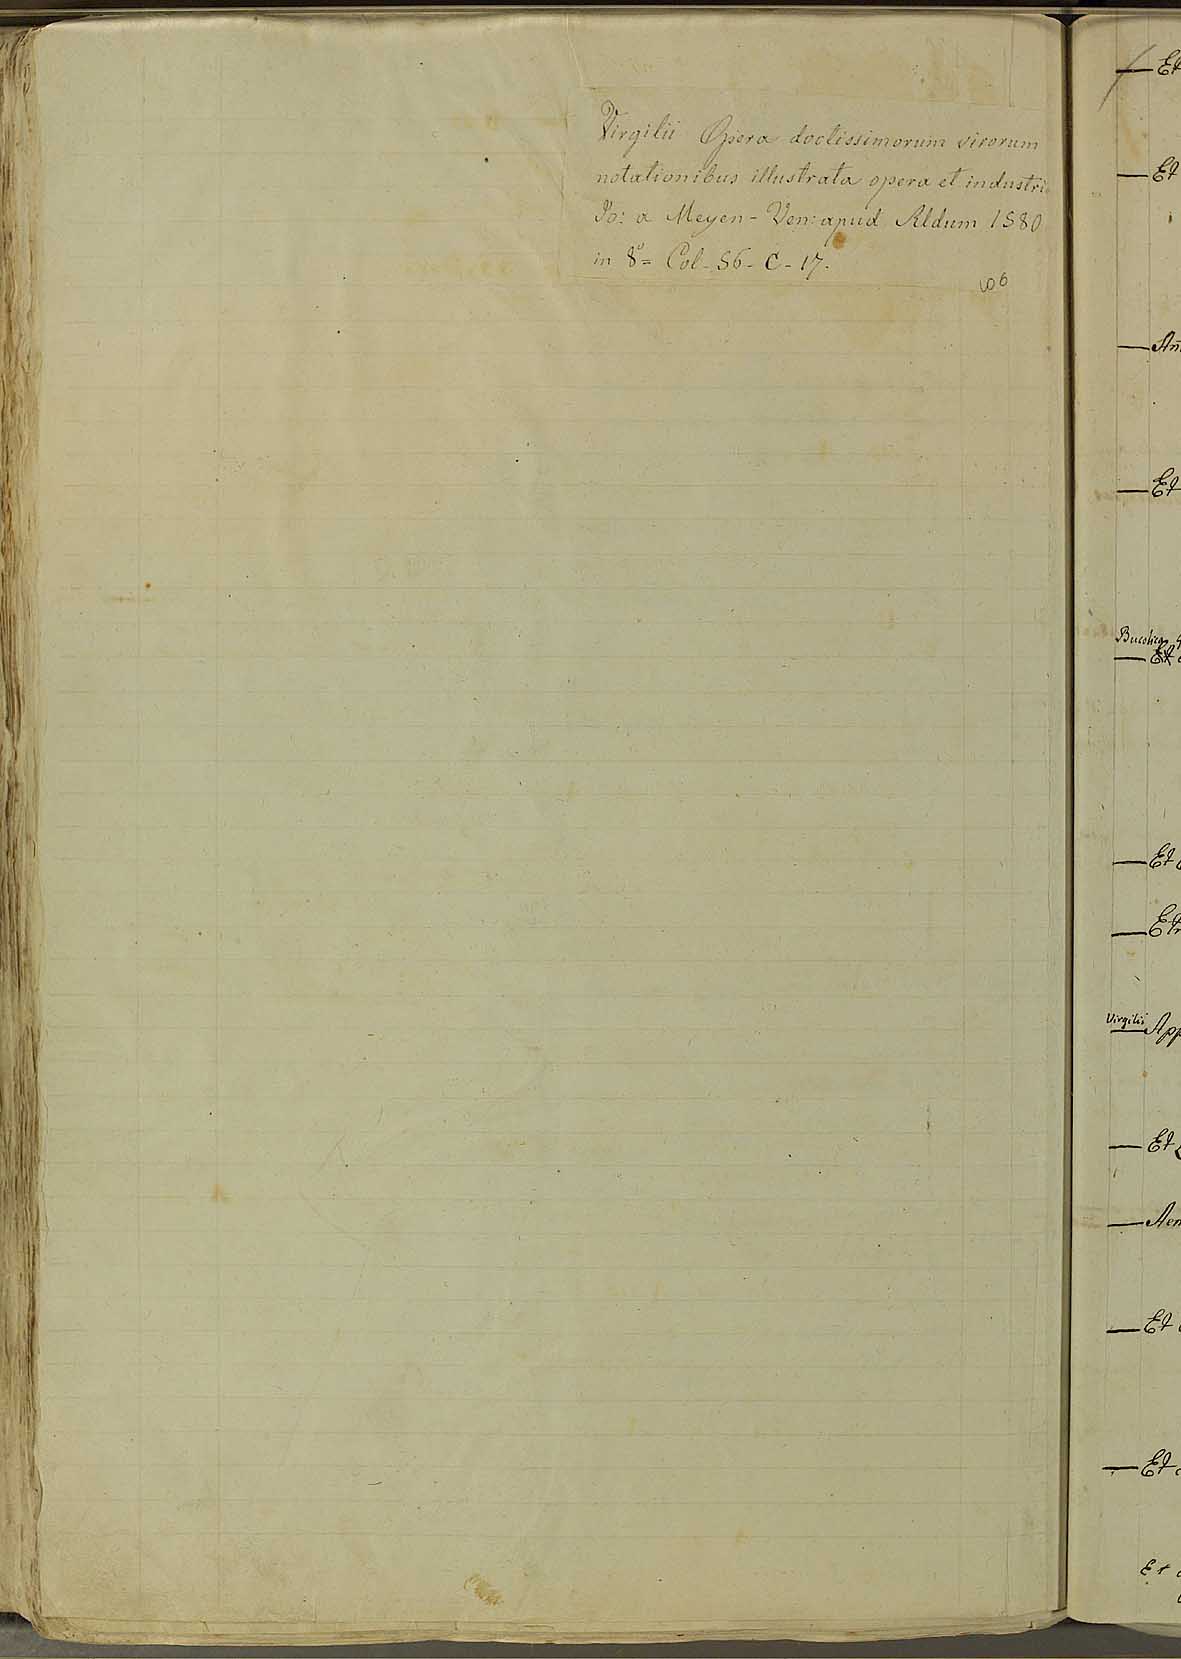 Virgilii Opera doctissimorum virorum
notationibus illustrata opera et industri
Io: a Meyen - Ven: apud Aldum 1580
in 8º = Col - S6 - C - 17.
Et
Et
Et
Bucolica
Et
Et
Virgilii App
Et
Aen
Et
Et
Et